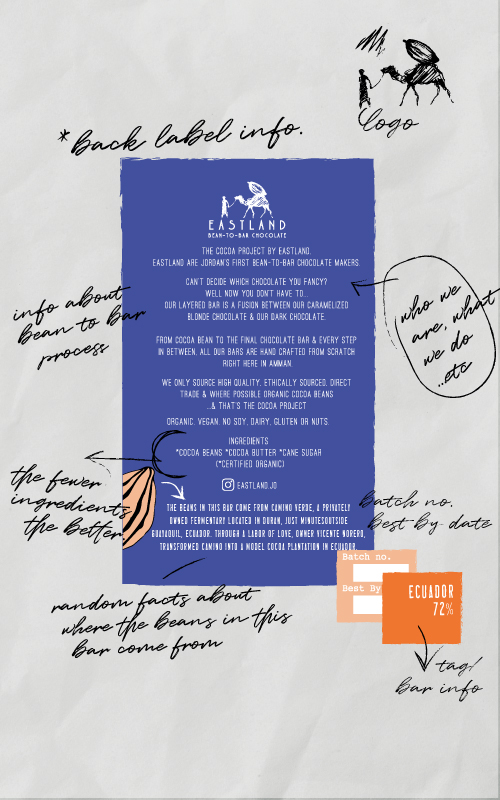 logo
*back label info.
EASTLAND
BEAN-TO-BAR CHOCOLATE
THE COCOA PROJECT BY EASTLAND.
EASTLAND ARE JORDAN'S FIRST BEAN-TO-BAR CHOCOLATE MAKERS.
CAN'T DECIDE WHICH CHOCOLATE YOU FANCY?
WELL NOW YOU DON'T HAVE TO...
OUR LAYERED BAR IS A FUSION BETWEEN OUR CARAMELIZED
BLONDE CHOCOLATE & OUR DARK CHOCOLATE.
info about
bean to bar
process
who we
are, what
we do
..etc
FROM COCOA BEAN TO THE FINAL CHOCOLATE BAR & EVERY STEP
IN BETWEEN, ALL OUR BARS ARE HAND CRAFTED FROM SCRATCH
RIGHT HERE IN AMMAN.
WE ONLY SOURCE HIGH QUALITY, ETHICALLY SOURCED, DIRECT
TRADE & WHERE POSSIBLE ORGANIC COCOA BEANS
...& THAT'S THE COCOA PROJECT
ORGANIC. VEGAN. NO SOY, DAIRY, GLUTEN OR NUTS.
INGREDIENTS
*COCOA BEANS *COCOA BUTTER *CANE SUGAR
(*CERTIFIED ORGANIC)
EASTLAND.JO
the fewer
ingredients
the better
THE BEANS IN THIS BAR COME FROM CAMINO VERDE, A PRIVATELY
OWNED FERMENTARY LOCATED IN DURAN, JUST MINUTESOUTSIDE
GUAYAQUIL, ECUADOR. THROUGH A LABOR OF LOVE, OWNER VICENTE NORERO,
TRANSFORMED CAMINO INTO A MODEL COCOA PLANTATION IN ECUADOR.
Batch no.
Best-by-date
Batch no.
Best By
ECUADOR
72%
random facts about
where the beans in this
bar come from
tag/
bar info